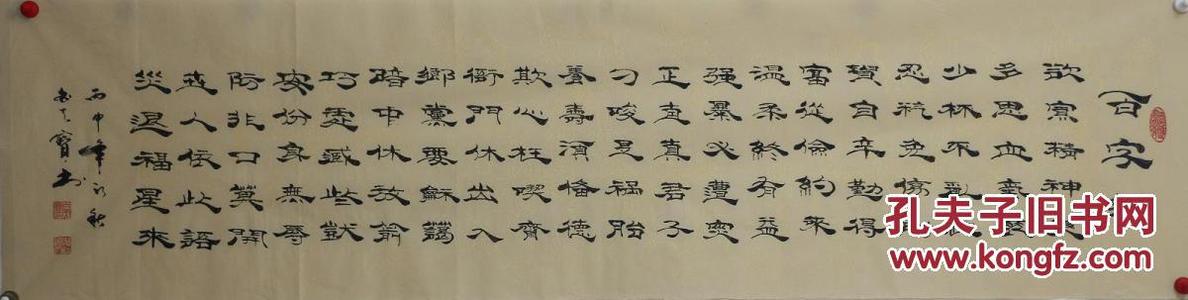 百字
欲寡精神
多思血氣
少杯不亂
忍氣免傷
貴自辛勤得
富從儉約來
溫柔終有益
强暴必遭灾
正直真君子
刁唆是禍胎
養壽須脩德
欺心枉喫齋
衙門休出入
鄉黨要龢諧
暗中休放箭
巧處藏些獃
安份身無辱
防非口莫開
世人依此語
災退福星來
丙申年初秋
寶书
孔夫子旧书网
www.kongfz.com